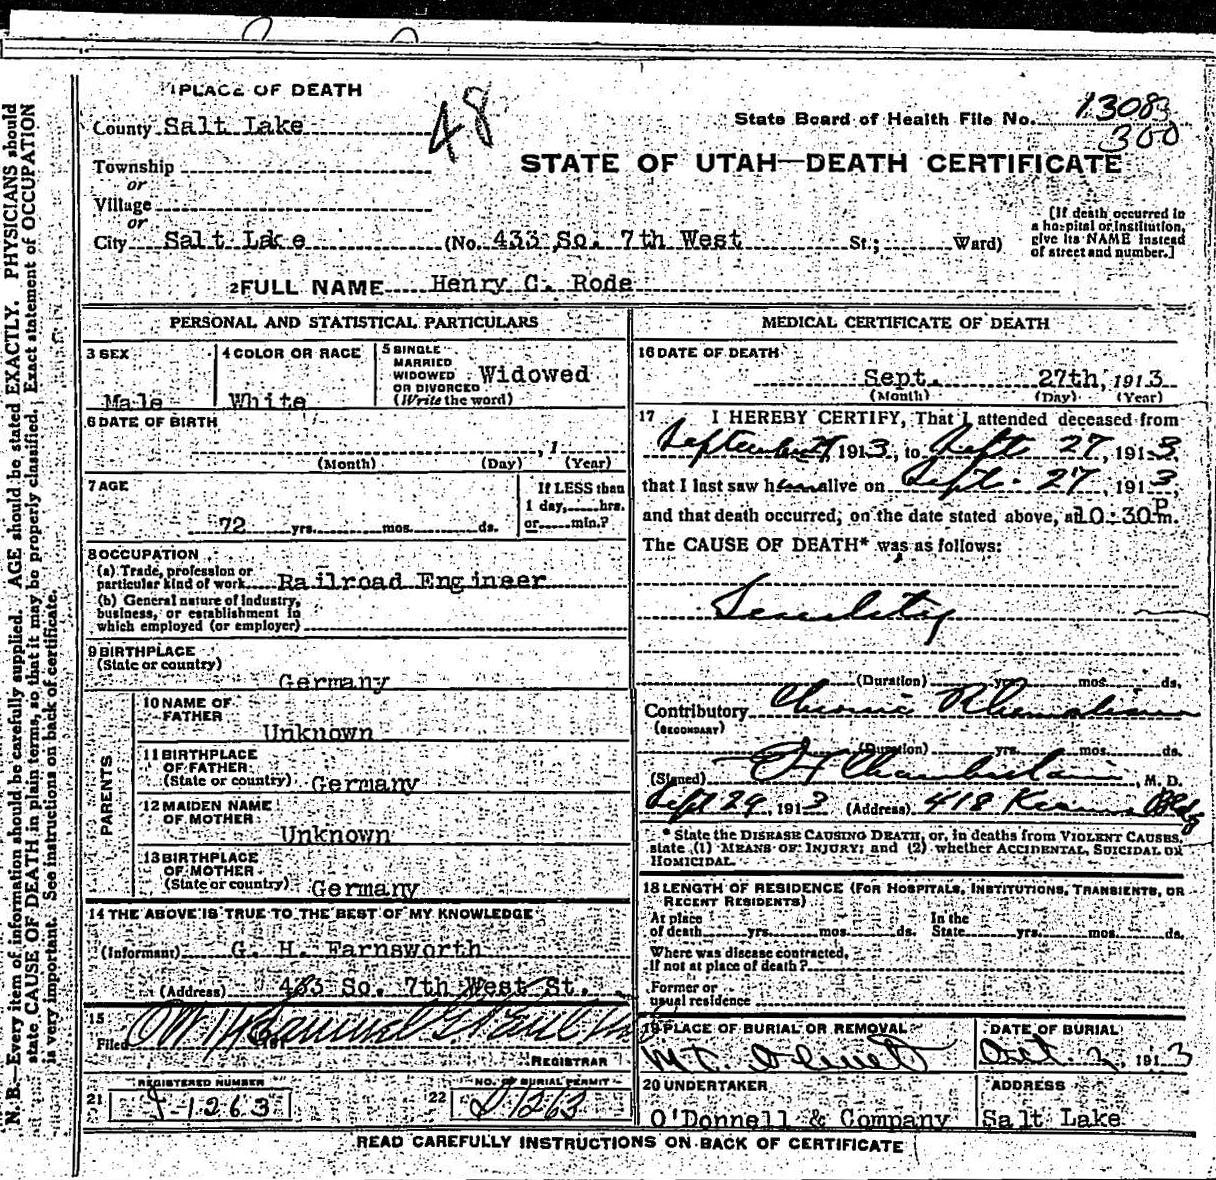 1 PLACE OF DEATH
County Salt Lake
48
State Board of Health File No. 13083
300
STATE OF UTAH—DEATH CERTIFICATE
Township
or
Village
or
City Salt Lake (No. 433 So. 7th West St.; Ward)
[If death occurred in
a hospital or institution,
give its NAME instead
of street and number.]
2 FULL NAME Henry C. Rode
PERSONAL AND STATISTICAL PARTICULARS
3 SEX
Male
4 COLOR OR RACE
White
5 SINGLE
MARRIED
WIDOWED
OR DIVORCED
(Write the word)
Widowed
6 DATE OF BIRTH
, 1
(Month) (Day) (Year)
7 AGE
72 yrs. mos. ds.
If LESS than
1 day, hrs.
or min.?
8 OCCUPATION
(a) Trade, profession or
particular kind of work Railroad Engineer
(b) General nature of industry,
business, or establishment in
which employed (or employer)
9 BIRTHPLACE
(State or country)
Germany
PARENTS
10 NAME OF
FATHER
Unknown
11 BIRTHPLACE
OF FATHER
(State or country) Germany
12 MAIDEN NAME
OF MOTHER
Unknown
13 BIRTHPLACE
OF MOTHER
(State or country) Germany
14 THE ABOVE IS TRUE TO THE BEST OF MY KNOWLEDGE
(Informant) G. H. Farnsworth
(Address) 433 So. 7th West St.
15
Filed
REGISTRAR
REGISTERED NUMBER
21
J-1263
NO. OF BURIAL PERMIT
22
D1263
MEDICAL CERTIFICATE OF DEATH
16 DATE OF DEATH
Sept. 27th, 1913
(Month) (Day) (Year)
17 I HEREBY CERTIFY, That I attended deceased from
September 1913, to Sept 27, 1913,
that I last saw him alive on Sept. 27, 1913,
and that death occurred, on the date stated above, at 10:30 P m.
The CAUSE OF DEATH* was as follows:
Senility
(Duration) yrs. mos. ds.
Contributory Chronic Rheumatism
(SECONDARY)
(Duration) yrs. mos. ds.
(Signed) Chamberlain, M. D.
Sept 29, 1913 (Address) 418 Kearns Bldg
* State the DISEASE CAUSING DEATH, or, in deaths from VIOLENT CAUSES,
state (1) MEANS OF INJURY; and (2) whether ACCIDENTAL, SUICIDAL OR
HOMICIDAL.
18 LENGTH OF RESIDENCE (FOR HOSPITALS, INSTITUTIONS, TRANSIENTS, OR
RECENT RESIDENTS)
At place
of death yrs. mos. ds.
In the
State yrs. mos. ds.
Where was disease contracted,
if not at place of death?
Former or
usual residence
19 PLACE OF BURIAL OR REMOVAL
Mt. Olivet
DATE OF BURIAL
Oct. 2, 1913
20 UNDERTAKER
O'Donnell & Company
ADDRESS
Salt Lake
READ CAREFULLY INSTRUCTIONS ON BACK OF CERTIFICATE
N. B.—Every item of information should be carefully supplied. AGE should be stated EXACTLY. PHYSICIANS should
state CAUSE OF DEATH in plain terms, so that it may be properly classified. Exact statement of OCCUPATION
is very important. See instructions on back of certificate.